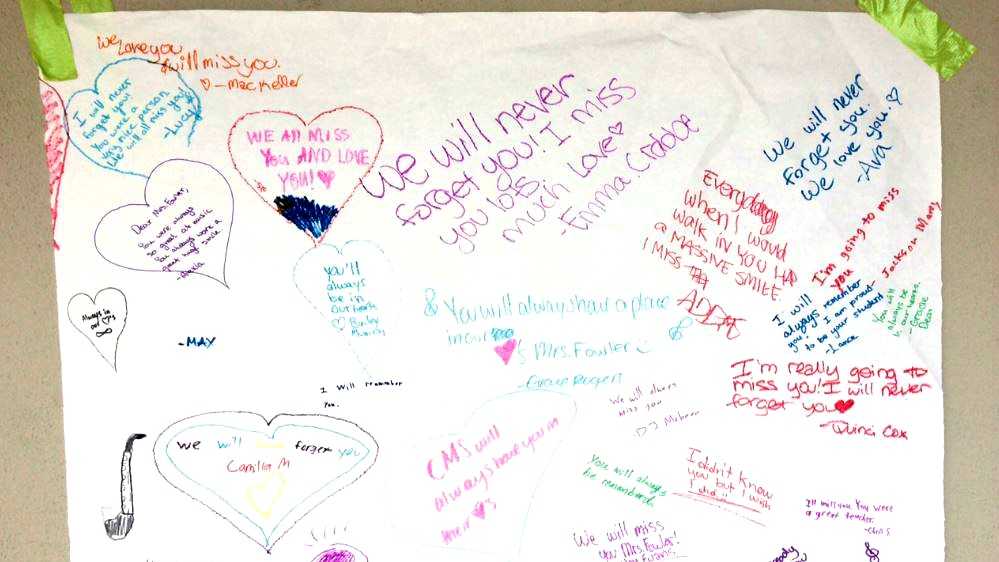 we
Love you
& will miss you.
♡ - Mac Keller
I will never
forget you!
You were a
very nice person.
We will all miss you!
-Lucy
WE All MISS
You AND LOVE
YOU! ♡
Dear Mrs. Fowler,
You were always
so great at music
You always wore a
great huge smile.
Always in
our ♡'s
∞
-MAY
you'll
always
be in
our hearts
♡
We will never
forget you! I miss
you lots
much love ♡
-Emma Crabbe
We will never
forget you.
We love you. ♡
-Ava
Everyday
when I would
walk in you had
a MASSIVE SMILE.
I MISS
ADDIE
I'm going to miss
you
-Jackson
I will
always remember
you! I am proud
to be your student
-Lance
You will
always be
in our hearts.
Gracie
Dean
& You will always have a place
in our
♥'s Mrs. Fowler
-Grace
I'm really going to
miss you! I will never
forget you ♥
-Quinci Cox
I Will remember
You.
We will always
miss you
DJ
we will forget you
Camilla M
CMS will
always have you in
their ♥'s
You will always
be remembered
I didn't know
you but I wish
I did
I'll miss you. You were
a great teacher.
-Chris
We will miss
you Mrs. Fowler!